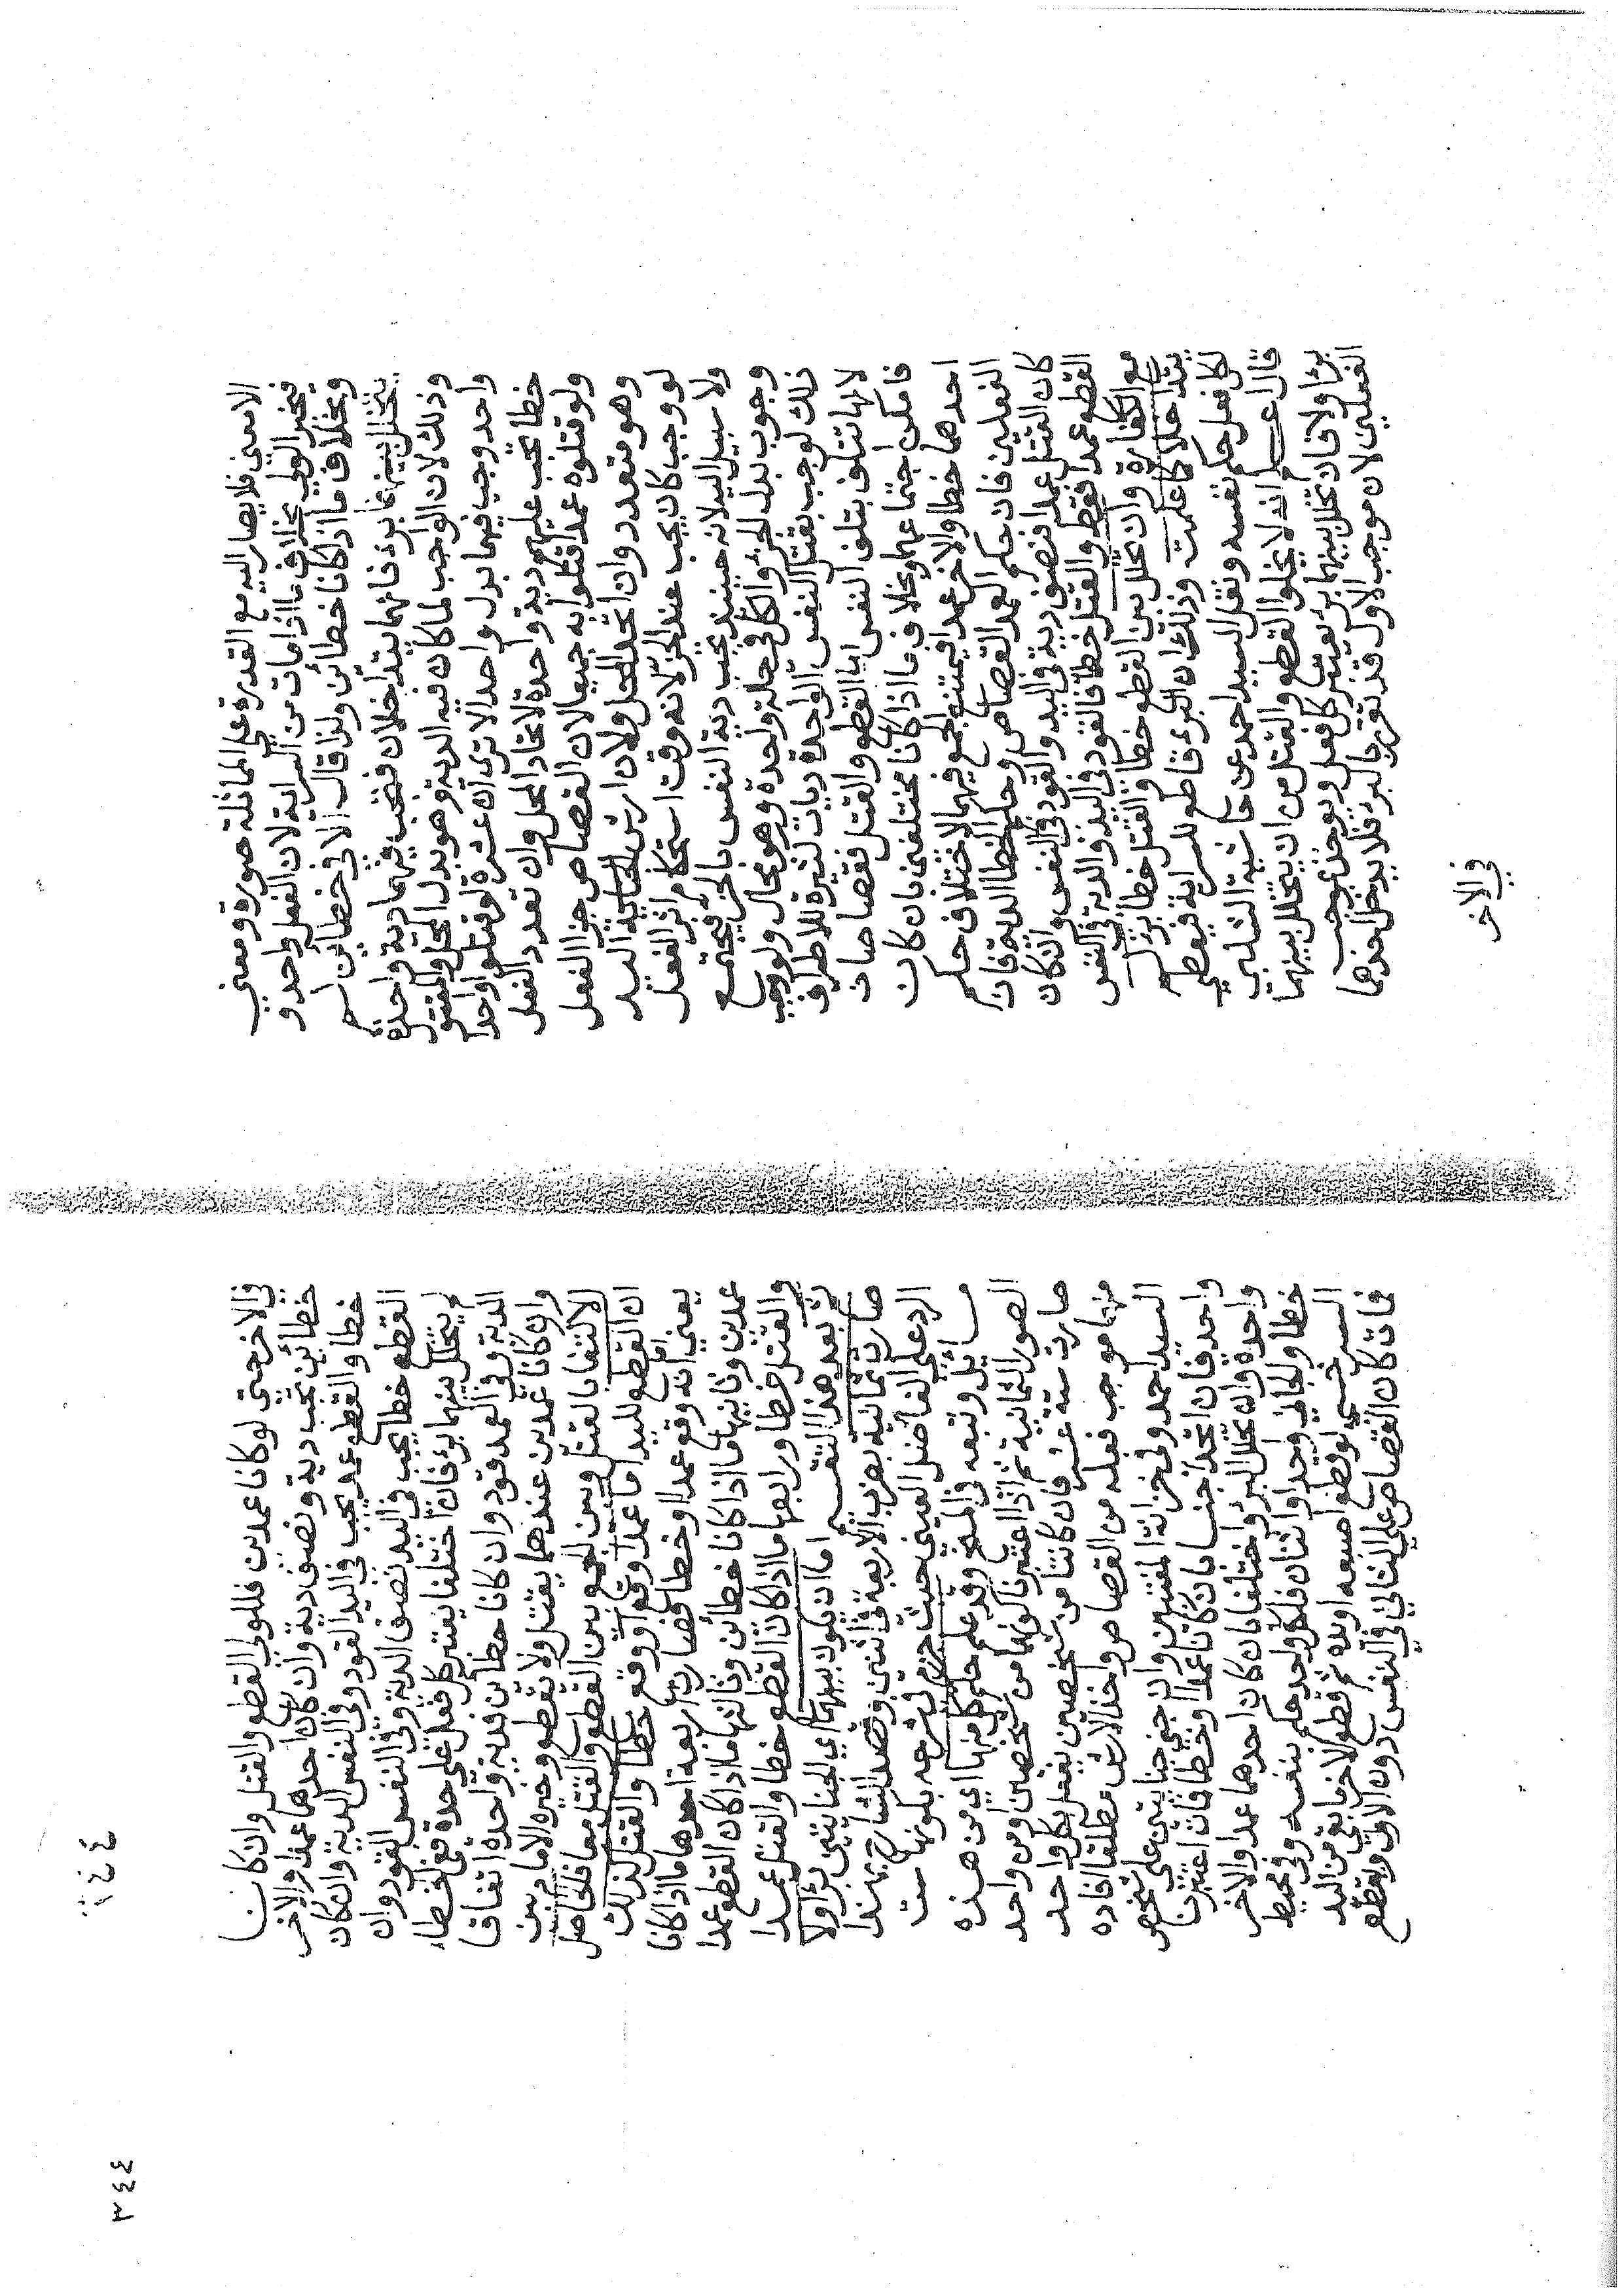 الا معنى فلا يصار اليه مع القدرة على المماثلة صورة ومعنى
فيخير الولي بخلاف ما اذا مات من السراية لان الفعل واحد و
وبخلاف ما اذا كانا خطائين ولذا قال الا في خطائين لم
يتخلل بينهما برؤ فانهما يتداخلان فتجب فيهما دية واحدة
وذلك لان الواجب لما كان فيه الدية وهو بدل المحل والمقتول
واحد وجب فيهما بدل واحد الا ترى ان عشرة لو قتلوا واحدا
خطا يجب عليهم دية واحدة لاتحاد المحل وان تعدد الفعل
ولو قتلوه عمدا قتلوا به جميعا لان القصاص جزا الفعل
وهو متعدد وان اتحد المحل ولان ارش اليد
لو وجب كان يجب عند الحز لانه وقت استحكام اثر الفعل
ولا سبيل اليه لانه حينئذ يجب دية النفس بالحز فيجتمع
وجوب بدل الجزء والكل في حالة واحدة وهو محال ولو وجب
ذلك لوجب بقتل النفس الواحدة ديات كثيرة للاطراف
لانها تتلف بتلف النفس اما القطع والقتل فقصاصات
فامكن اجتماعهما وبخلاف ما اذا كانا مختلفين بان كان
احدهما خطا والاخر عمدا فيمتنع الجمع فيهما لاختلاف حكم
الفعلين فان حكم العمد القصاص وحكم الخطا الدية فان
كان القتل عمدا فنصف دية في اليد والقود في النفس وان كان
القطع عمدا فقطع والقتل خطا فالقود في اليد والدية في النفس
مع الكفارة وان تخلل بين القطع خطا والقتل خطا برء لم
يتداخلا كما علمت وذلك ان البرؤ قاطع للسراية فيعطى
لكل فعل حكم نفسه ونقل السيد احمد عن حاشية الشلبي
قال اعلم انه لا يخلو القطع والقتل من ان يتخلل بينهما
برؤ اولا فان تخلل بينهما برؤ يعتبر كل فعل ويوخذ بموجب
الفعلين لان موجب الاول قد تقرر بالبرء فلا يدخل احدهما
في الاخر
في الاخر حتى لو كانا عمدين فللولي القطع والقتل وان كان
خطائين تجب دية ونصف دية وان كان احدهما عمدا والاخر
خطا والقطع عمد يجب في اليد القود وفي النفس الدية وان كان
القطع خطا يجب في اليد نصف الدية وفي النفس القود وان
لم يتخلل بينهما برؤ فان اختلفا يعتبر كل فعل على حدة ففي الخطاء
الدية وفي العمد قود وان كانا خطاين فدية واحدة اتفاقا
وان كانا عمدين عندهما يقتل ولا يقطع وخيره الامام بين
الاكتفا بالقتل وبين الجمع بين القطع والقتل معا فالحاصل
ان القطع لليد اما عمد او وقع خطا والقتل كذلك
يعني انه اما وقع عمدا او خطا فصارت اربعة احدها ما اذا كانا
عمدين وثانيها ما اذا كانا خطائين وثالثها ما اذا كان القطع عمدا
والقتل خطا ورابعها ما اذا كان القطع خطا والقتل عمدا
ثم بعد هذا التقسيم اما ان يكون بينهما اي الجنايتين برؤ اولا
صارت ثمانية بضرب الاربعة في اثنين وقصد الشارح بهذا
الرد على الفاضل العيني حيث جزم في شرحه بكونها ست
مسايل وتبعه في المنح وقد علم حكم كل منها اي من هذه
الصور الثمانية ثم اذا اعتبرنا كونهما من شخصين او من واحد
صارت ستة عشر فان كانتا من شخصين يفعل بكل واحد
منهما موجب فعله من القصاص واخذ الارش مطلقا افاده
السيد احمد وفي خزانة المفتيين وان جنى جنايتين على شخص
واحد فان اتحدا جنسا بان كانا عمدا او خطا فان اعتبرنا
واحدة وان تخلل البرؤ واختلفا بان كان احدهما عمدا والاخر
خطا والجاني واحد او اثنان فلكل واحد حكم نفسه وفي محيط
السرخسي لو قطع اصبعه او يده ثم قطع الاخر ما بقي من اليد
فمات كان القصاص على الثاني في النفس دون الاول ويقطع
٣٤٤